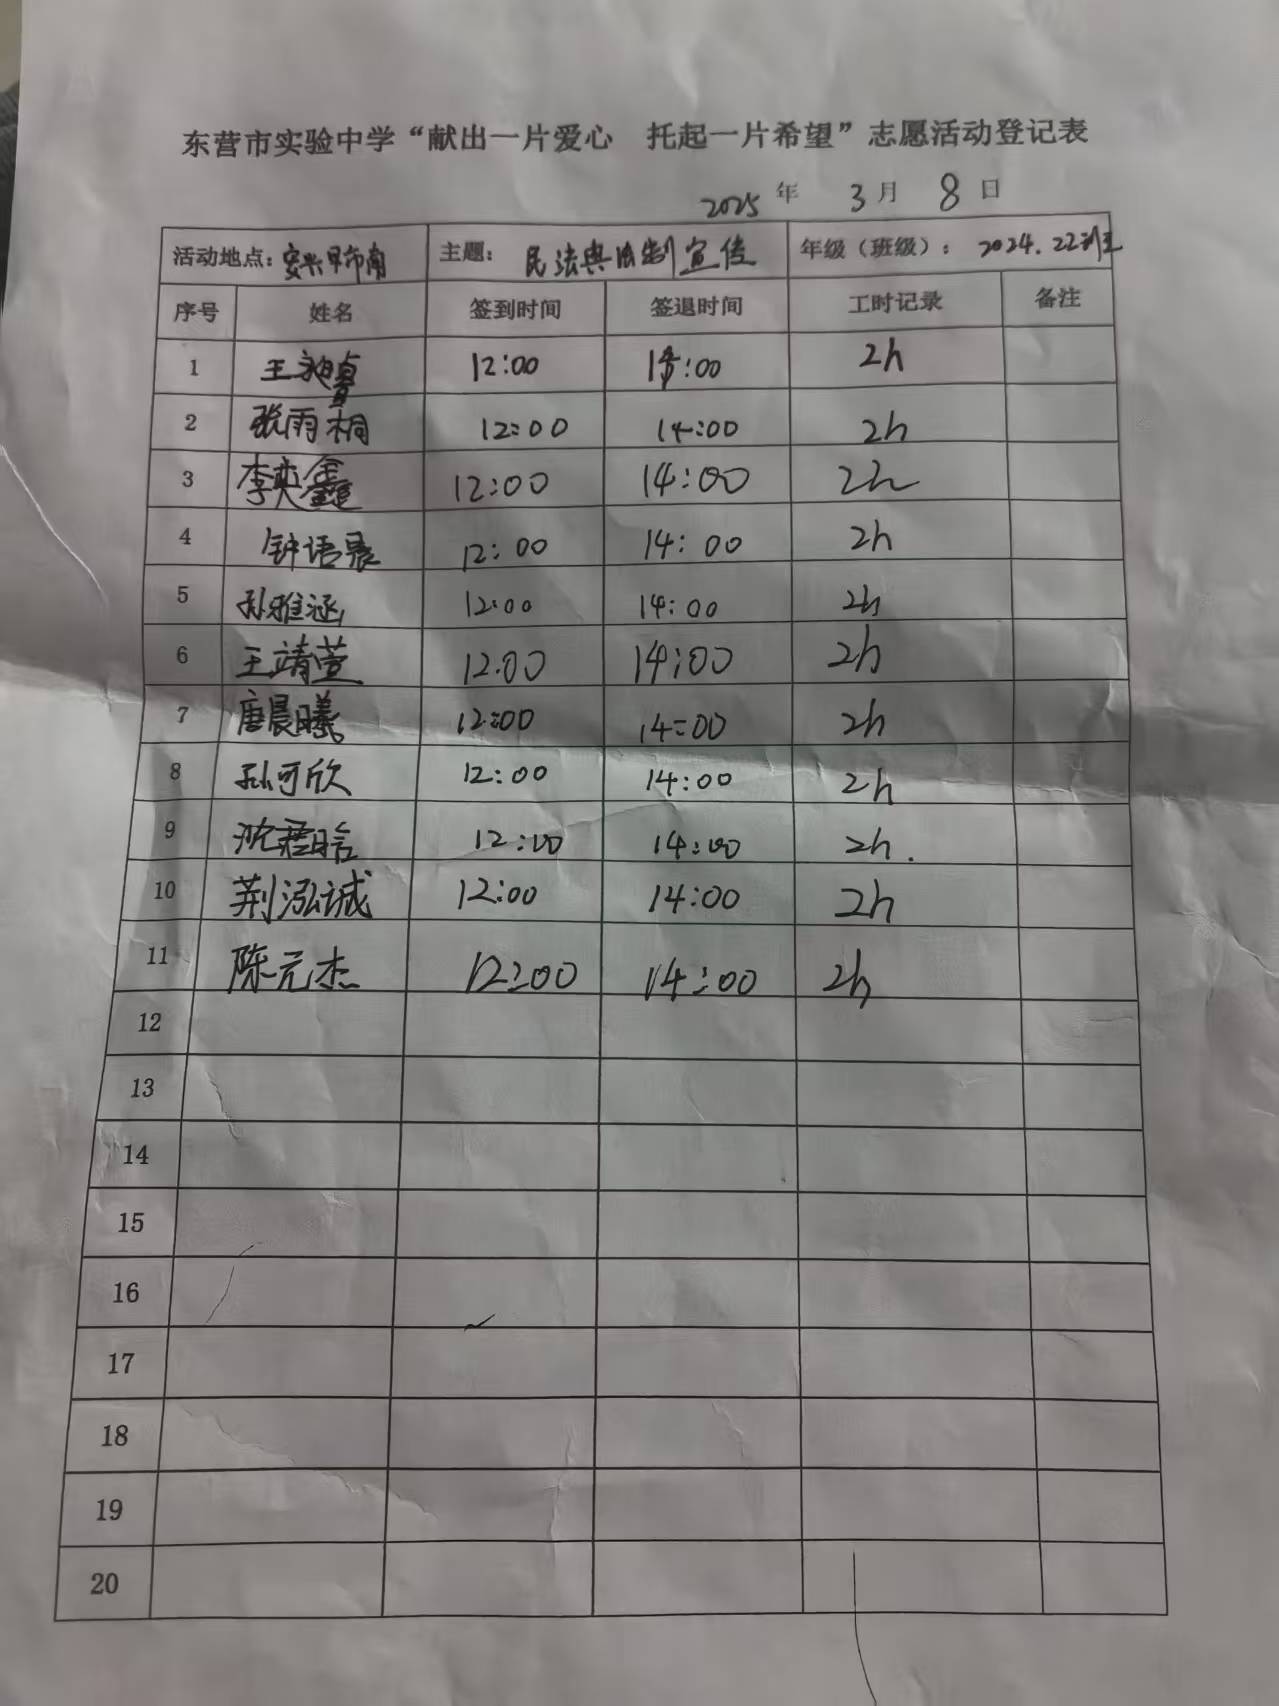 东营市实验中学“献出一片爱心 托起一片希望”志愿活动登记表
2025 年 3 月 8 日
活动地点: 安兴早市南 主题: 民法典法制宣传 年级（班级）: 2024.22班
序号 姓名 签到时间 签退时间 工时记录 备注
1 王昶 12:00 14:00 2h
2 张雨桐 12:00 14:00 2h
3 李奕鑫 12:00 14:00 2h
4 钟语晨 12:00 14:00 2h
5 孙雅涵 12:00 14:00 2h
6 王靖萱 12:00 14:00 2h
7 唐晨曦 12:00 14:00 2h
8 孙可欣 12:00 14:00 2h
9 沈君晗 12:00 14:00 2h.
10 荆泓诚 12:00 14:00 2h
11 陈元杰 12:00 14:00 2h
12
13
14
15
16
17
18
19
20